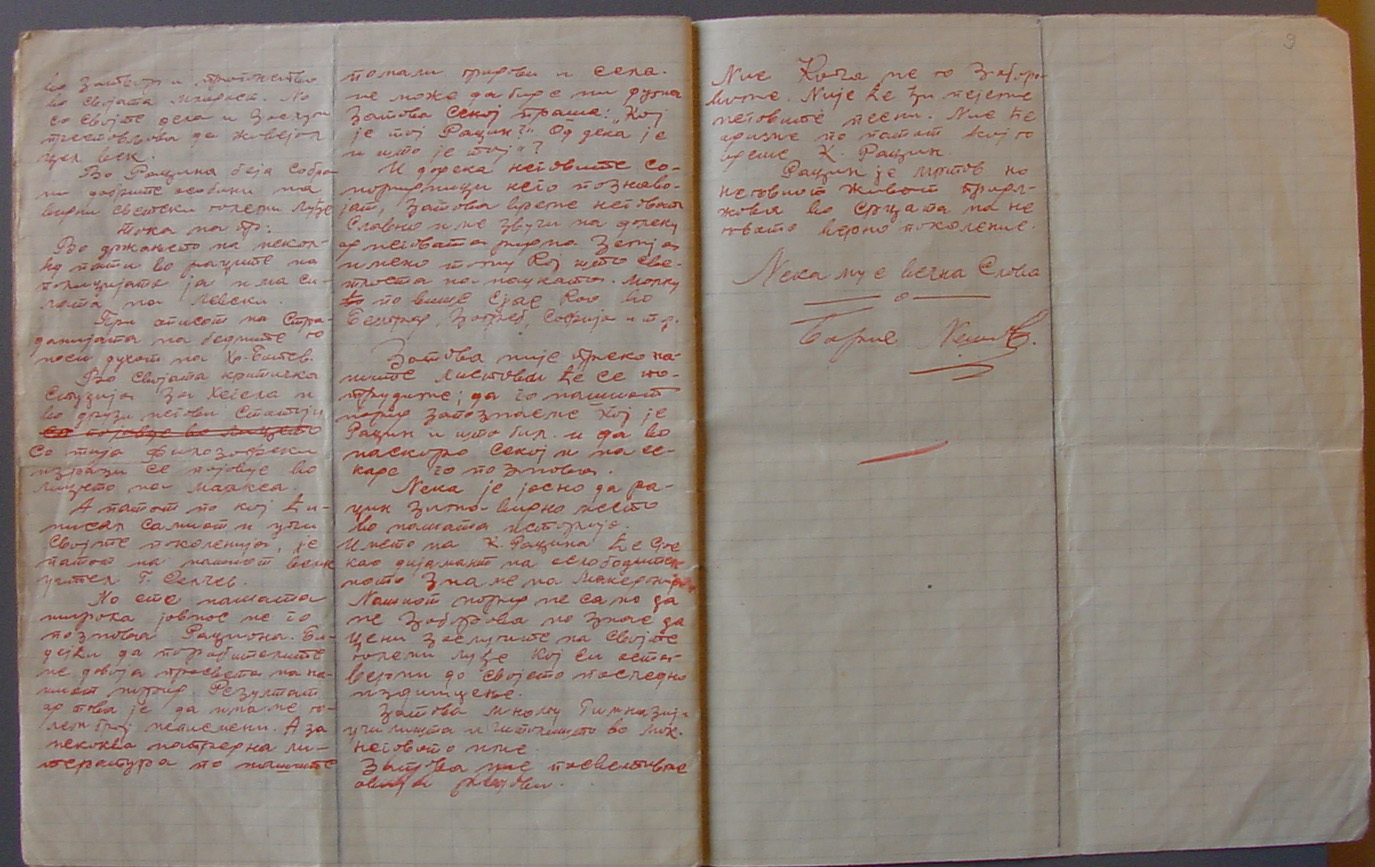 во затвор и
во својата младост. Но
со својте дела и заслуги
да живејот
цел век.
Во Рацина беја собра-
ни добрите особини на
верни светски големи луѓе
тока на пр:
Во држањето на некол-
ку пати во рацете на
полицијата ја има си-
лата на Левски.
При описот на стра-
данијата на бедните го
носи духот на Хр. Ботев.
Во својата критичка
студија за Хегела и
во други негови статији
со тија филозофски
изрази се појовује во
лицето на Маркса.
А патот по кој ги
писал самиот и учи
својте поколенија, је
патот на нашиот велик
учител Г. Делчев.
Но сте нашата
широка јовнос не го
позновa Рациона. Би-
дејќи да поробителите
не довоја просвета на на-
шиот норид. Резултат
од това је да има не го-
лем број неписмени. А за
некоква напредна ли-
тература по нашите
помали градови и села.
не може да биде ни дума
Затова секој праша: „Кој
је тој Рацин?" Од дека је
и што је тој"?
И додека неговите со-
породници него познаво-
јат, затова време неговот
Славно име звучи на далеку
од неговата родна Земја,
име по
по више сјае Коо во
Београд, Загреб, Софија и т.р.
Затова није преко на-
шите листови ќе се по-
трудиме; да го нашиот
норид запознаеме кој је
Рацин и што бил. и да во
наскоро секој и на ес-
каре, го познова.
Нека је јосно да ра-
цин зима видно место
во нашата историја.
Името на К. Рацина ќе сјае
као дијамант на ослободител-
ното знаме на Македонија
Нашиот норид не само да
не заборова но знае да
цени заслугите на својте
големи луѓе кој си оста-
верни до својето последно
издишуење.
Затова многу Гимназија,
училишта и читалишта во Мак.
неговото име.
Затова ние посветивме
овија редови.
Ние Коча не го забора-
виме. Није ќе ги пејеме
неговите песни. Ние ќе
одиме по патот кој го
време К. Рацин
Рацин је мртов но
неговиот живот продол-
жова во срцата на не
говото верно поколение.
Нека му е вечна Слова
Борис